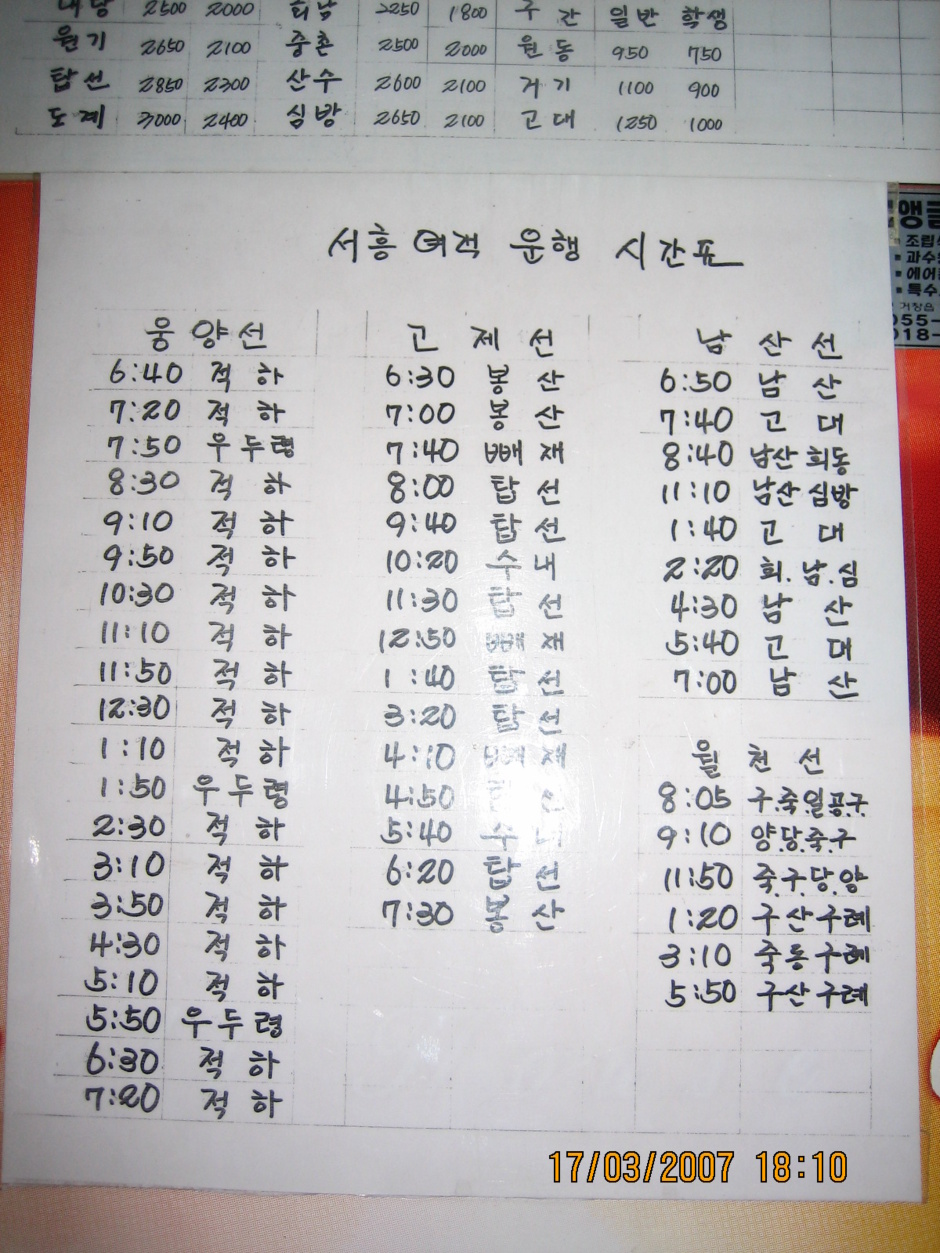 2500 2000 회남 2250 1800 구간 일반 학생
원기 2650 2100 중촌 2500 2000 원동 950 750
탑선 2850 2300 산수 2600 2100 거기 1100 900
도계 3000 2400 심방 2650 2100 고대 1250 1000
서흥여객 운행 시간표
웅양선
6:40 적하
7:20 적하
7:50 우두령
8:30 적하
9:10 적하
9:50 적하
10:30 적하
11:10 적하
11:50 적하
12:30 적하
1:10 적하
1:50 우두령
2:30 적하
3:10 적하
3:50 적하
4:30 적하
5:10 적하
5:50 우두령
6:30 적하
7:20 적하
고제선
6:30 봉산
7:00 봉산
7:40 빼재
8:00 탑선
9:40 탑선
10:20 수내
11:30 탑선
12:50 빼재
1:40 탑선
3:20 탑선
4:10 빼재
4:50
5:40 수내
6:20 탑선
7:30 봉산
남산선
6:50 남산
7:40 고대
8:40 남산 회동
11:10 남산 심방
1:40 고대
2:20 회.남.심
4:30 남산
5:40 고대
7:00 남산
월천선
8:05 구.죽.일.공.구
9:10 양.당.죽.구
11:50 죽.구.당.양
1:20 구산구례
3:10 죽동구례
5:50 구산구례
앵글
조립
과수
에어
특수
거창읍
055-
018-
17/03/2007 18:10